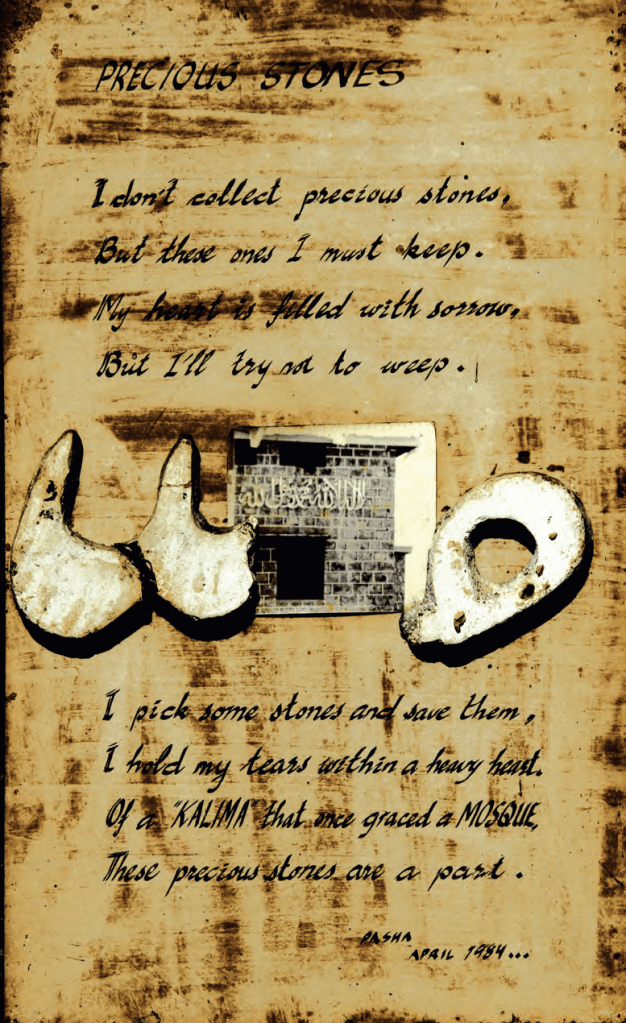 PRECIOUS STONES
I don't collect precious stones,
But these ones I must keep.
My heart is filled with sorrow,
But I'll try not to weep.
I pick some stones and save them,
I hold my tears within a heavy heart.
Of a "KALIMA" that once graced a MOSQUE,
These precious stones are a part.
PASHA
APRIL 1984...